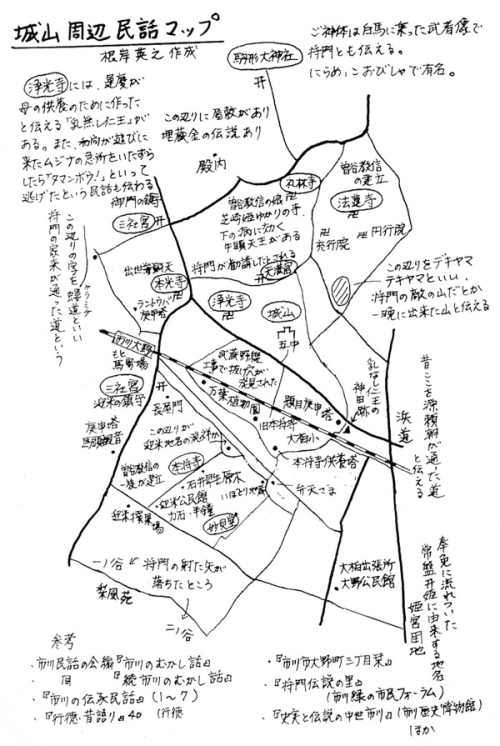 城山周辺民話マップ
根岸英之作成
ご神体は白馬に乗った武者像で
将門とも伝える。
にらめっこおびしゃで有名。
駒形大神社
浄光寺には、運慶が
母の供養のために作った
と伝える「乳無し仁王」が
ある。また、和尚が遊びに
来たムジナの急所をいたずら
したら「タマンボウ!」といって
逃げたという民話も伝わる
この辺りに屋敷があり
埋蔵金の伝説あり
殿内
御門の鎮守
三社宮
この辺りの字を蝶道といい
将門の家来が通った道という
礼林寺
曽谷教信の娘
芝崎姫ゆかりの寺
下の病に効く
牛頭天王がある
曽谷教信
の建立
法蓮寺
円行院
充行院
将門が勧請したとされる
天満宮
出世弁財天
本光寺
ラントウバ
庚申塔
浄光寺
城山
五中
この辺りをデキヤマ
テキヤマといい、
将門の敵の山だとか
一晩に出来た山と伝える
市川大野
もと
馬場
武蔵野線
工事で抜け穴が
発見された
万葉植物園
乳なし仁王の
神田跡
題目庚申塔
昔ここを源頼朝が通った道
と伝える
浜道
三社宮
迎米の鎮守
長屋門
旧本将寺
大柏小
庚申塔
馬頭観音
この辺りが
迎米地名の発祥か
本将寺供養塔
曽谷教信の
一族が建立
本将寺
石井早生原木
迎米公民館
力石・半鐘
いぼとり地蔵
弁天さま
妙見堂
迎米操業場
一ノ谷
将門の射た矢が
落ちたところ
梨風苑
二ノ谷
大柏出張所
大野公民館
奉免に流れついた
常盤井姫に由来する地名
姫宮団地
参考
・市川民話の会編『市川のむかし話』
・同『続市川のむかし話』
・『市川の伝承民話』(1~7)
・『行徳昔語り』40(行徳
・『市川市大野町三丁目栞』
・『将門伝説の里』
(市川緑の市民フォーラム)
・『史実と伝説の中世市川』(市川歴史博物館)
ほか